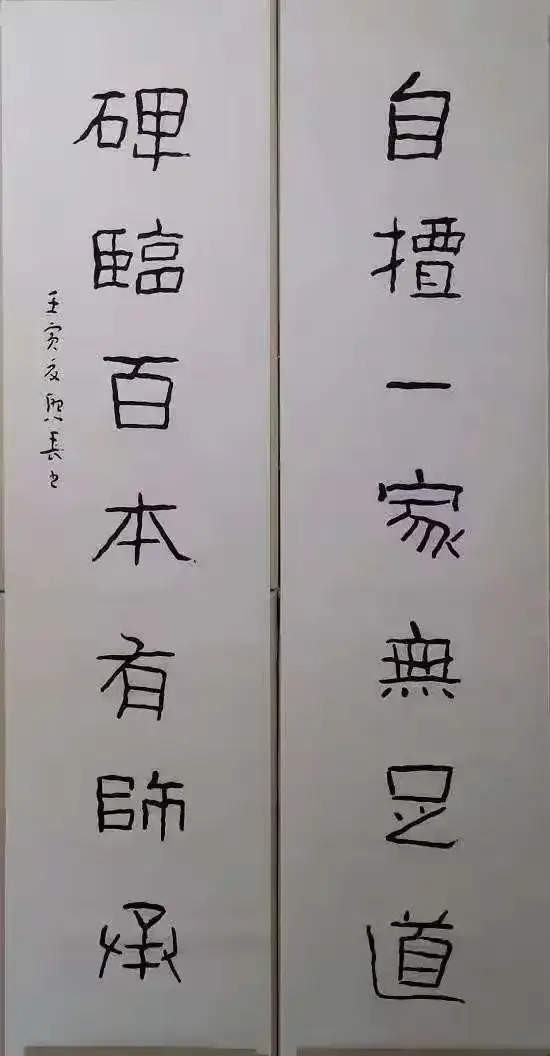 自擅一家無足道
碑臨百本有師承
壬寅夏興長書